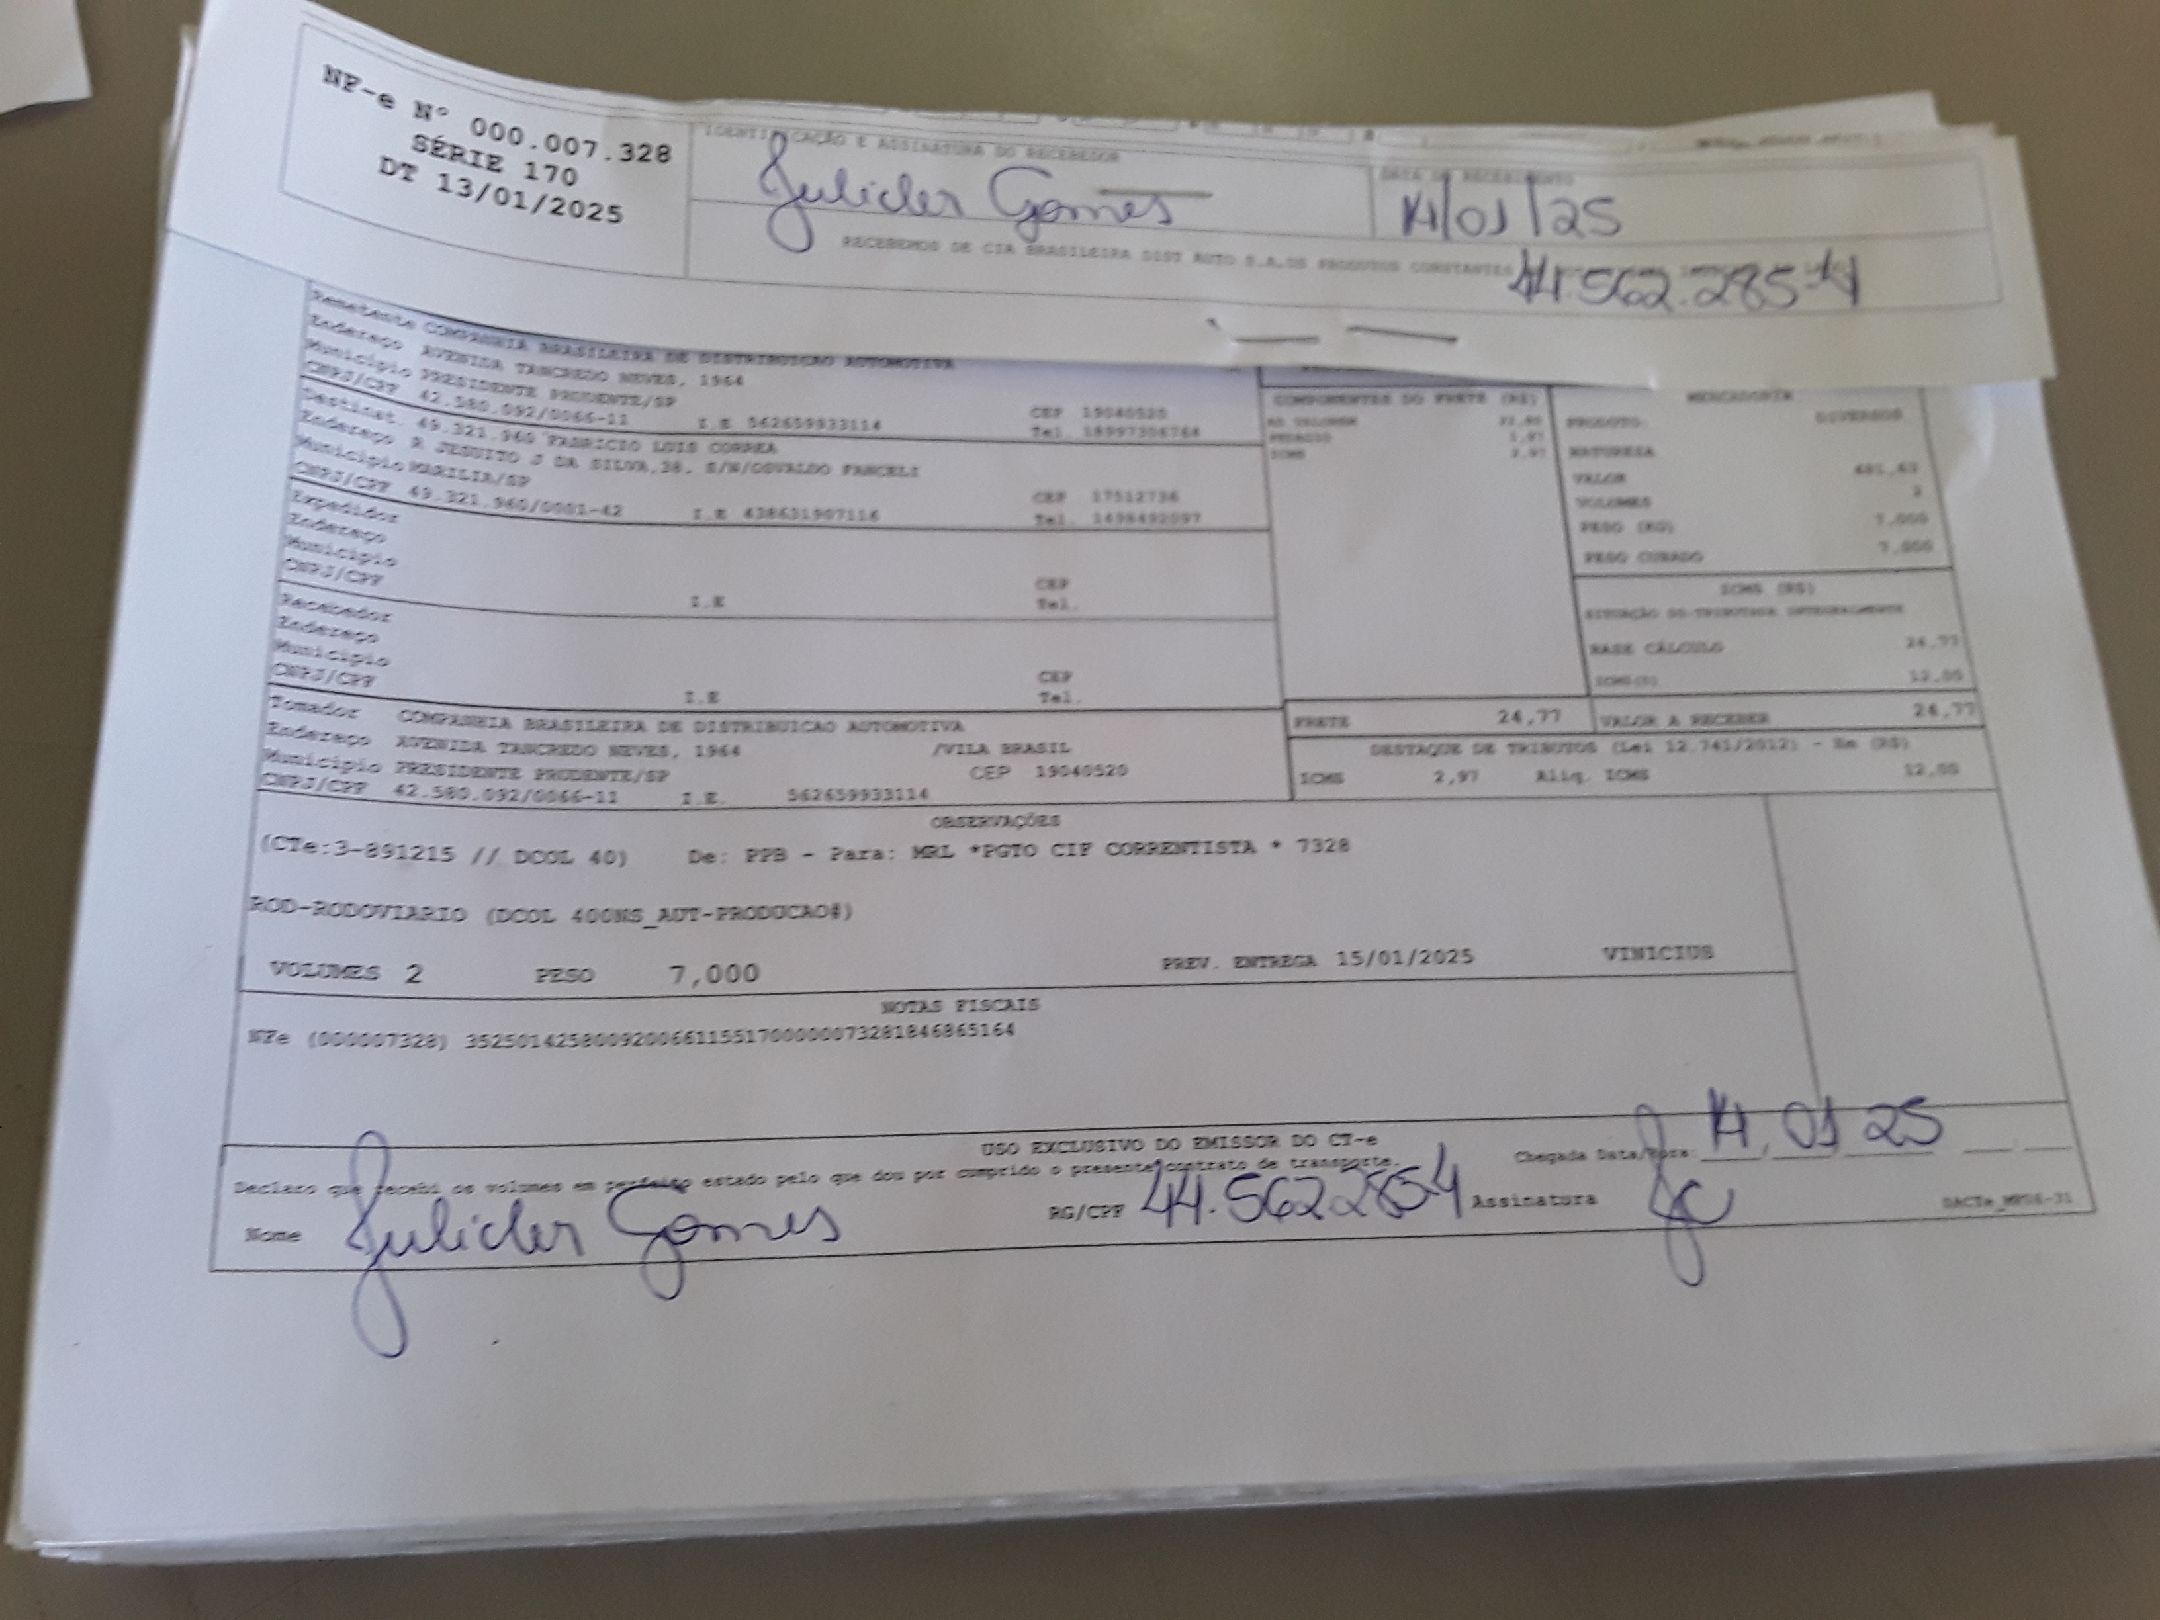 NF-e Nº 000.007.328
SÉRIE 170
DT 13/01/2025
IDENTIFICAÇÃO E ASSINATURA DO RECEBEDOR
Gomes
DATA DE RECEBIMENTO
14/01/25
RECEBEMOS DE CIA BRASILEIRA DIST AUTO S.A.OS PRODUTOS CONSTANTES
44.562.285-4
Remetente COMPANHIA BRASILEIRA DE DISTRIBUICAO AUTOMOTIVA
Endereço AVENIDA TANCREDO NEVES, 1964
Município PRESIDENTE PRUDENTE/SP CEP 19040520
CNPJ/CPF 42.580.092/0066-11 I.E 562659933114 Tel. 18997306764
Destinat. 49.321.960 FABRICIO LUIS CORREA
Endereço R JESUITO J DA SILVA,38, S/N/OSVALDO FANCELI
Município MARILIA/SP CEP 17512736
CNPJ/CPF 49.321.960/0001-42 I.E 438631907116 Tel. 1498492097
Expedidor
Endereço
Município CEP
CNPJ/CPF I.E Tel.
Recebedor
Endereço
Município CEP
CNPJ/CPF I.E Tel.
Tomador COMPANHIA BRASILEIRA DE DISTRIBUICAO AUTOMOTIVA
Endereço AVENIDA TANCREDO NEVES, 1964 /VILA BRASIL
Município PRESIDENTE PRUDENTE/SP CEP 19040520
CNPJ/CPF 42.580.092/0066-11 I.E. 562659933114
COMPONENTES DO FRETE (R$)
AD VALOREM
PEDAGIO
ICMS 2,97
MERCADORIA
PRODUTO: DIVERSOS
NATUREZA
VALOR
VOLUMES 2
PESO (KG) 7,000
PESO CUBADO 7,000
ICMS (R$)
SITUAÇÃO 00-TRIBUTADA INTEGRALMENTE
BASE CÁLCULO 24,77
ICMS(%) 12,00
FRETE 24,77 VALOR A RECEBER 24,77
DESTAQUE DE TRIBUTOS (Lei 12.741/2012) - Em (R$)
ICMS 2,97 Aliq. ICMS 12,00
OBSERVAÇÕES
(CTe:3-891215 // DCOL 40) De: PPB - Para: MRL *PGTO CIF CORRENTISTA * 7328
ROD-RODOVIARIO (DCOL 400NS_AUT-PRODUCAO#)
VOLUMES 2 PESO 7,000 PREV. ENTREGA 15/01/2025 VINICIUS
NOTAS FISCAIS
NFe (000007328) 35250142580092006611551700000073281846865164
USO EXCLUSIVO DO EMISSOR DO CT-e
Declaro que recebi os volumes em perfeito estado pelo que dou por cumprido o presente contrato de transporte.
Chegada Data/Hora: 14, 01 25
Nome Gomes RG/CPF 44.562.285-4 Assinatura
DACTe_MP06-31